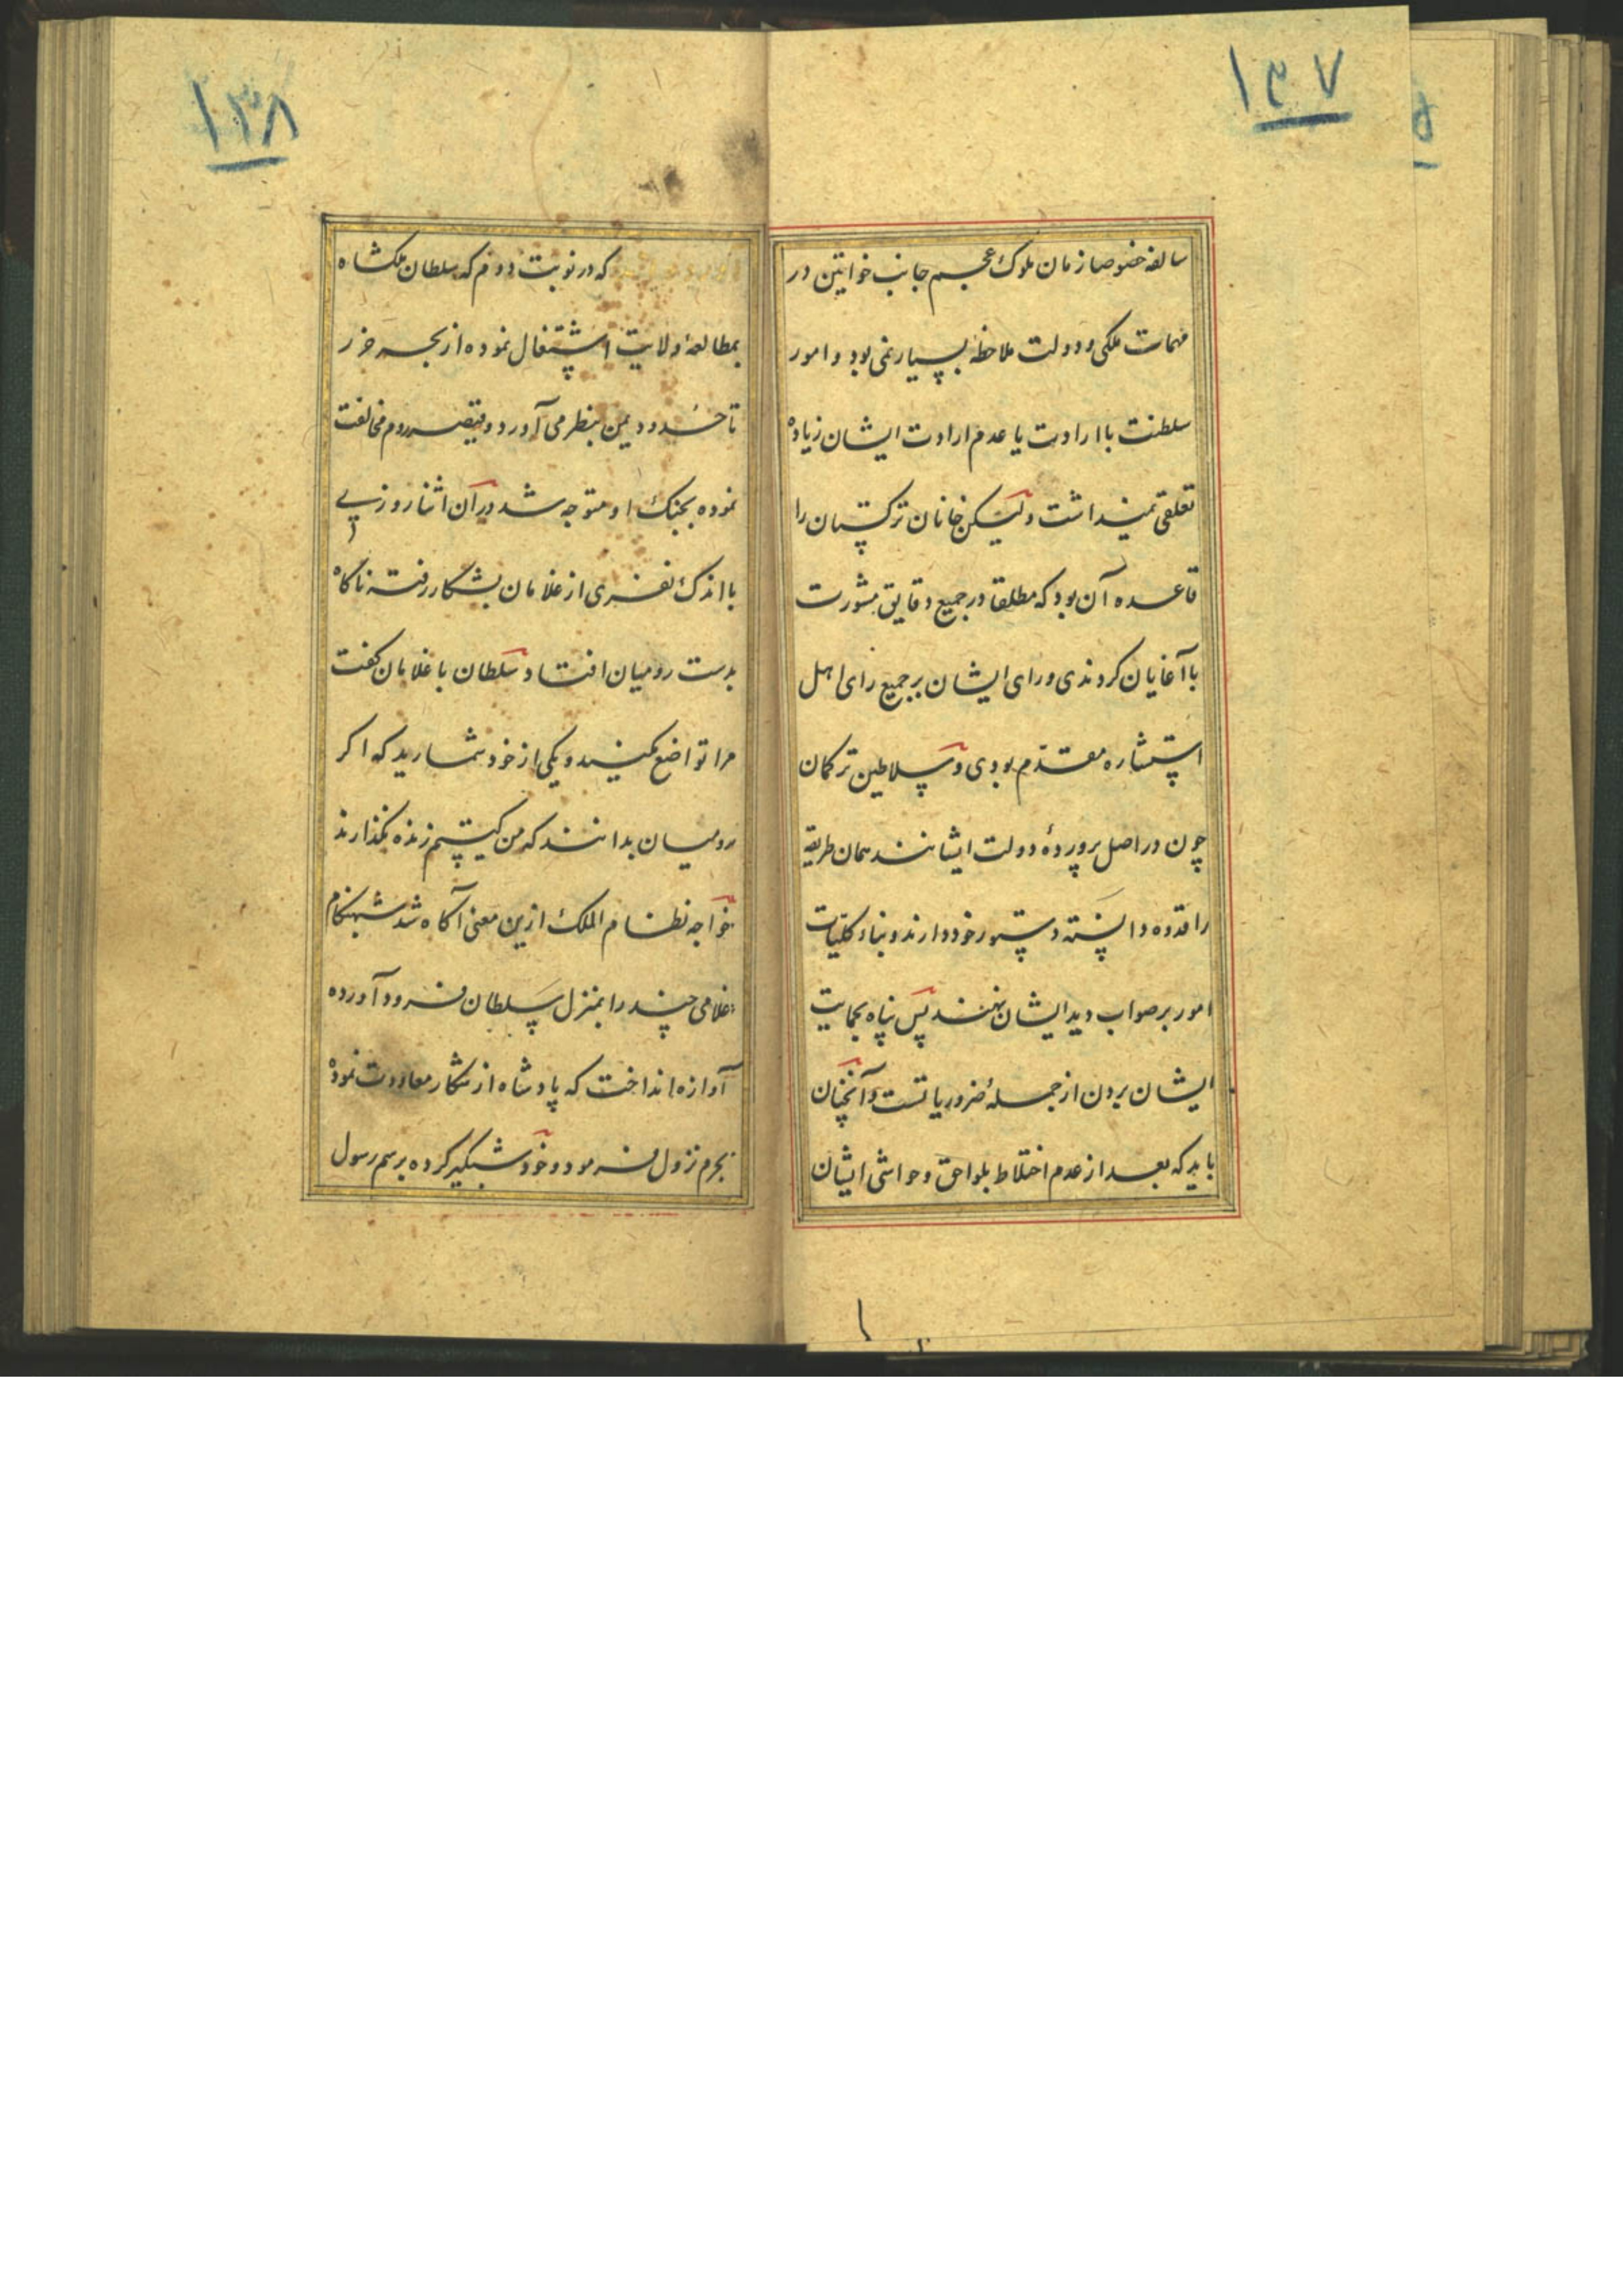 ۱۳۷
سالفه خصوصا زمان ملوک عجم جانب خواتین در
مهمات ملکی و دولت ملاحظه بسیار نمی بود و امور
سلطنت با ارادت یا عدم ارادت ایشان زیاده
تعلقی نمیداشت و لیکن خانان ترکستان را
قاعده آن بود که مطلقا در جمیع دقایق مشورت
با آغایان کردندی و رای ایشان بر جمیع رای اهل
استشاره مقدم بودی و سلاطین ترکمان
چون در اصل پروردهٔ دولت ایشانند همان طریقه
را قدوه دانسته دستور خود دارند و بناء کلیات
امور بر صواب دید ایشان نهند پس پناه بحمایت
ایشان بردن از جملهٔ ضروریاتست و آنچنان
باید که بعد از عدم اختلاط بلواحق و حواشی ایشان
۱۳۸
که در نوبت دوم که سلطان ملکشاه
بمطالعهٔ ولایت اشتغال نموده از بحر خزر
تا حدود یمن بنظر می آورد و قیصر روم مخالفت
نموده بجنک او متوجه شد در آن اثنا روزی
با اندک نفری از غلامان بشکار رفته ناکاه
بدست رومیان افتاد سلطان با غلامان کفت
مرا تواضع مکنید و یکی از خود شمارید که اکر
رومیان بدانند که من کیستم زنده نکذارند
خواجه نظام الملک ازین معنی آکاه شد شبهنکام
غلامی چند را بمنزل سلطان فرود آورده
آوازه انداخت که پادشاه از شکار معاودت نموده
بحرم نزول فرمود و خود شبکیر کرده برسم رسول